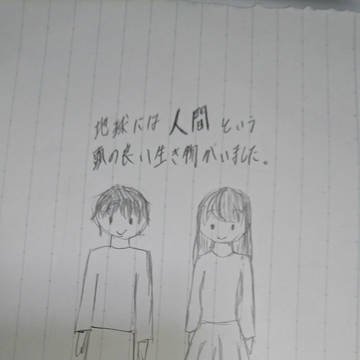 地球には人間という
頭の良い生き物がいました。